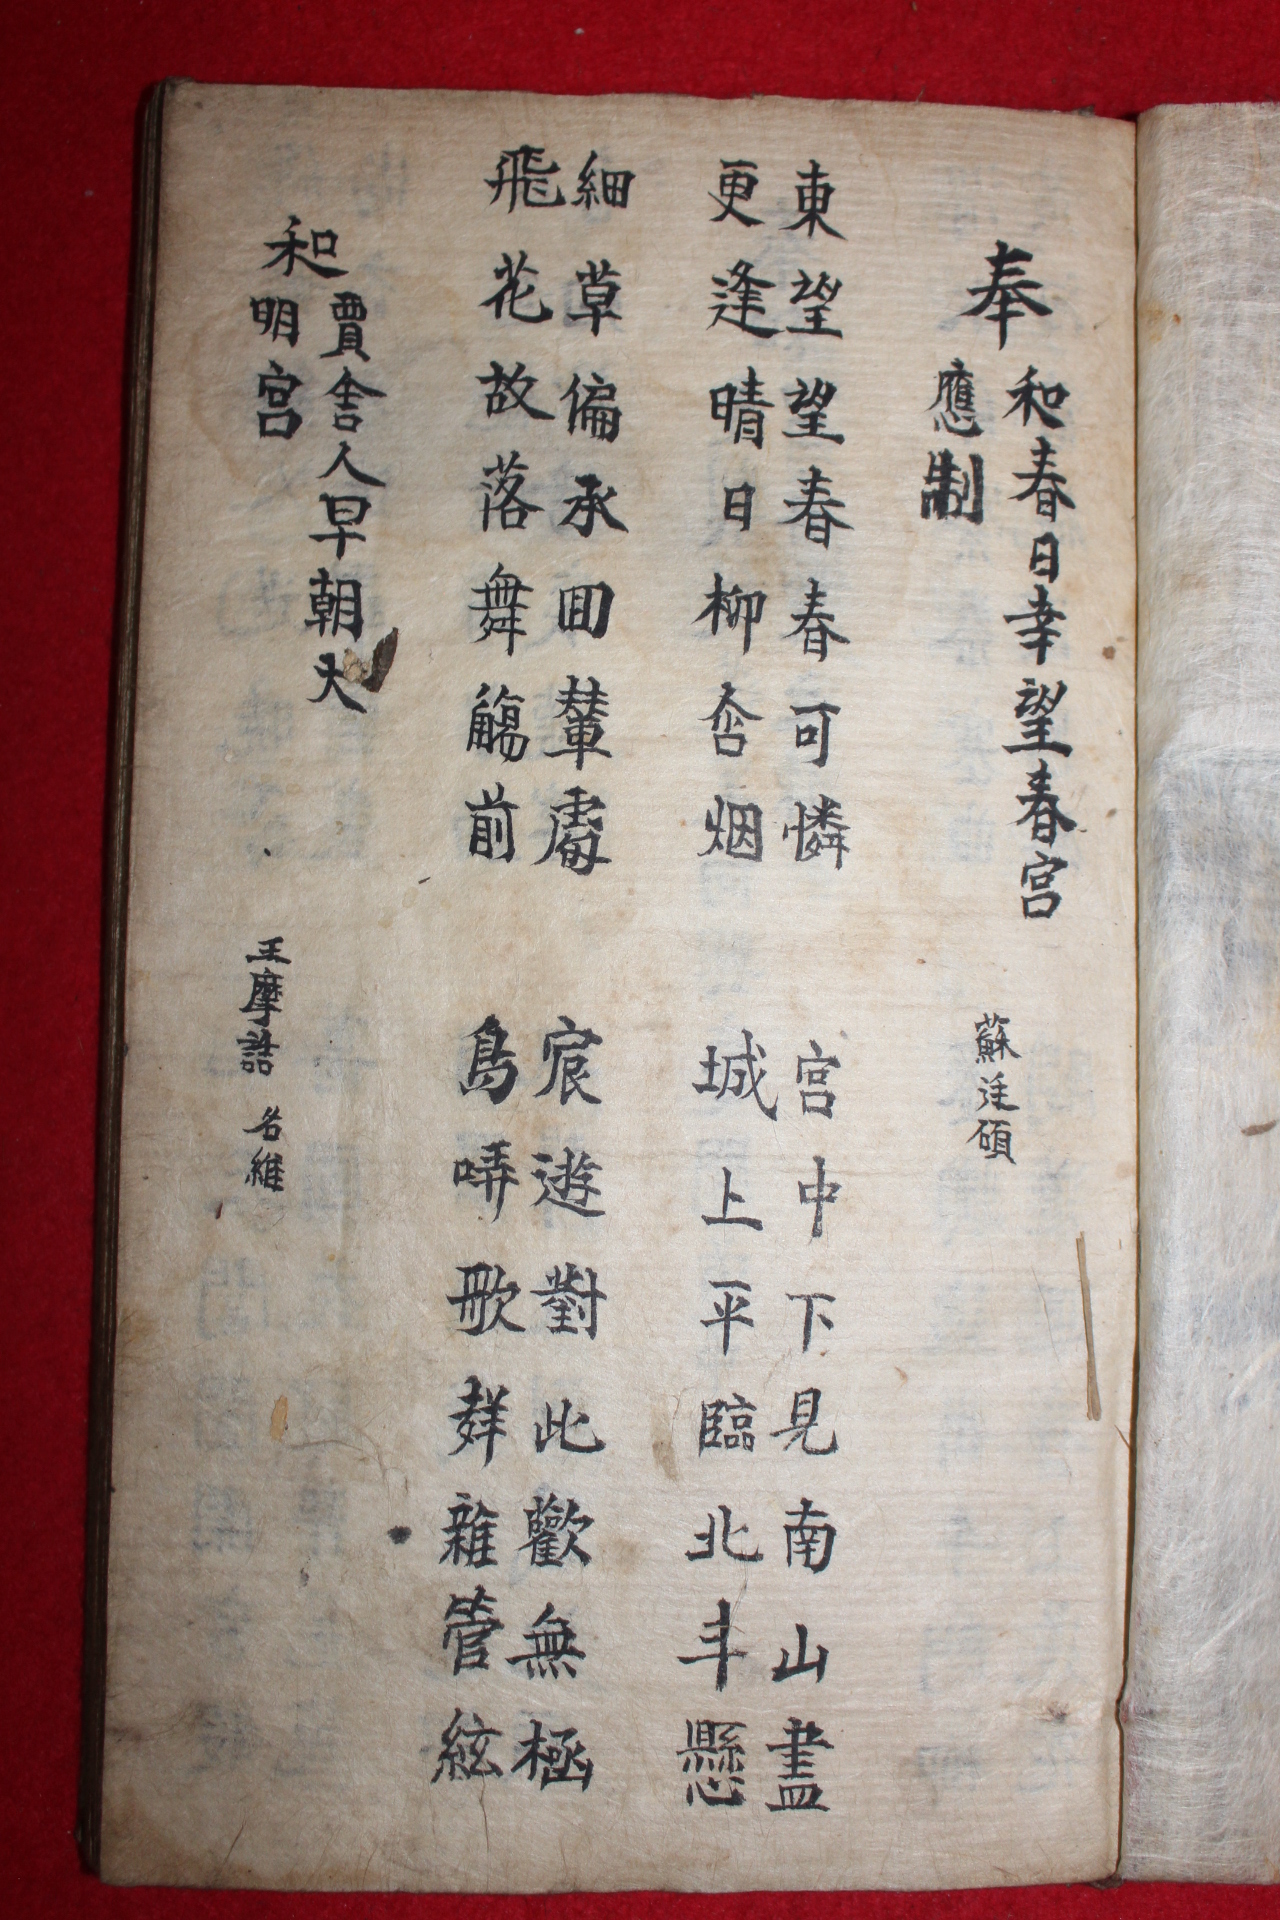 奉和春日幸望春宮
應制
蘇廷碩
東望望春春可憐
更逢晴日柳含烟
宮中下見南山盡
城上平臨北斗懸
細草偏承囬輦處
飛花故落舞觴前
宸遊對此歡無極
鳥哢歌群雜管絃
和賈舍人早朝大
明宮
王摩詰 名維